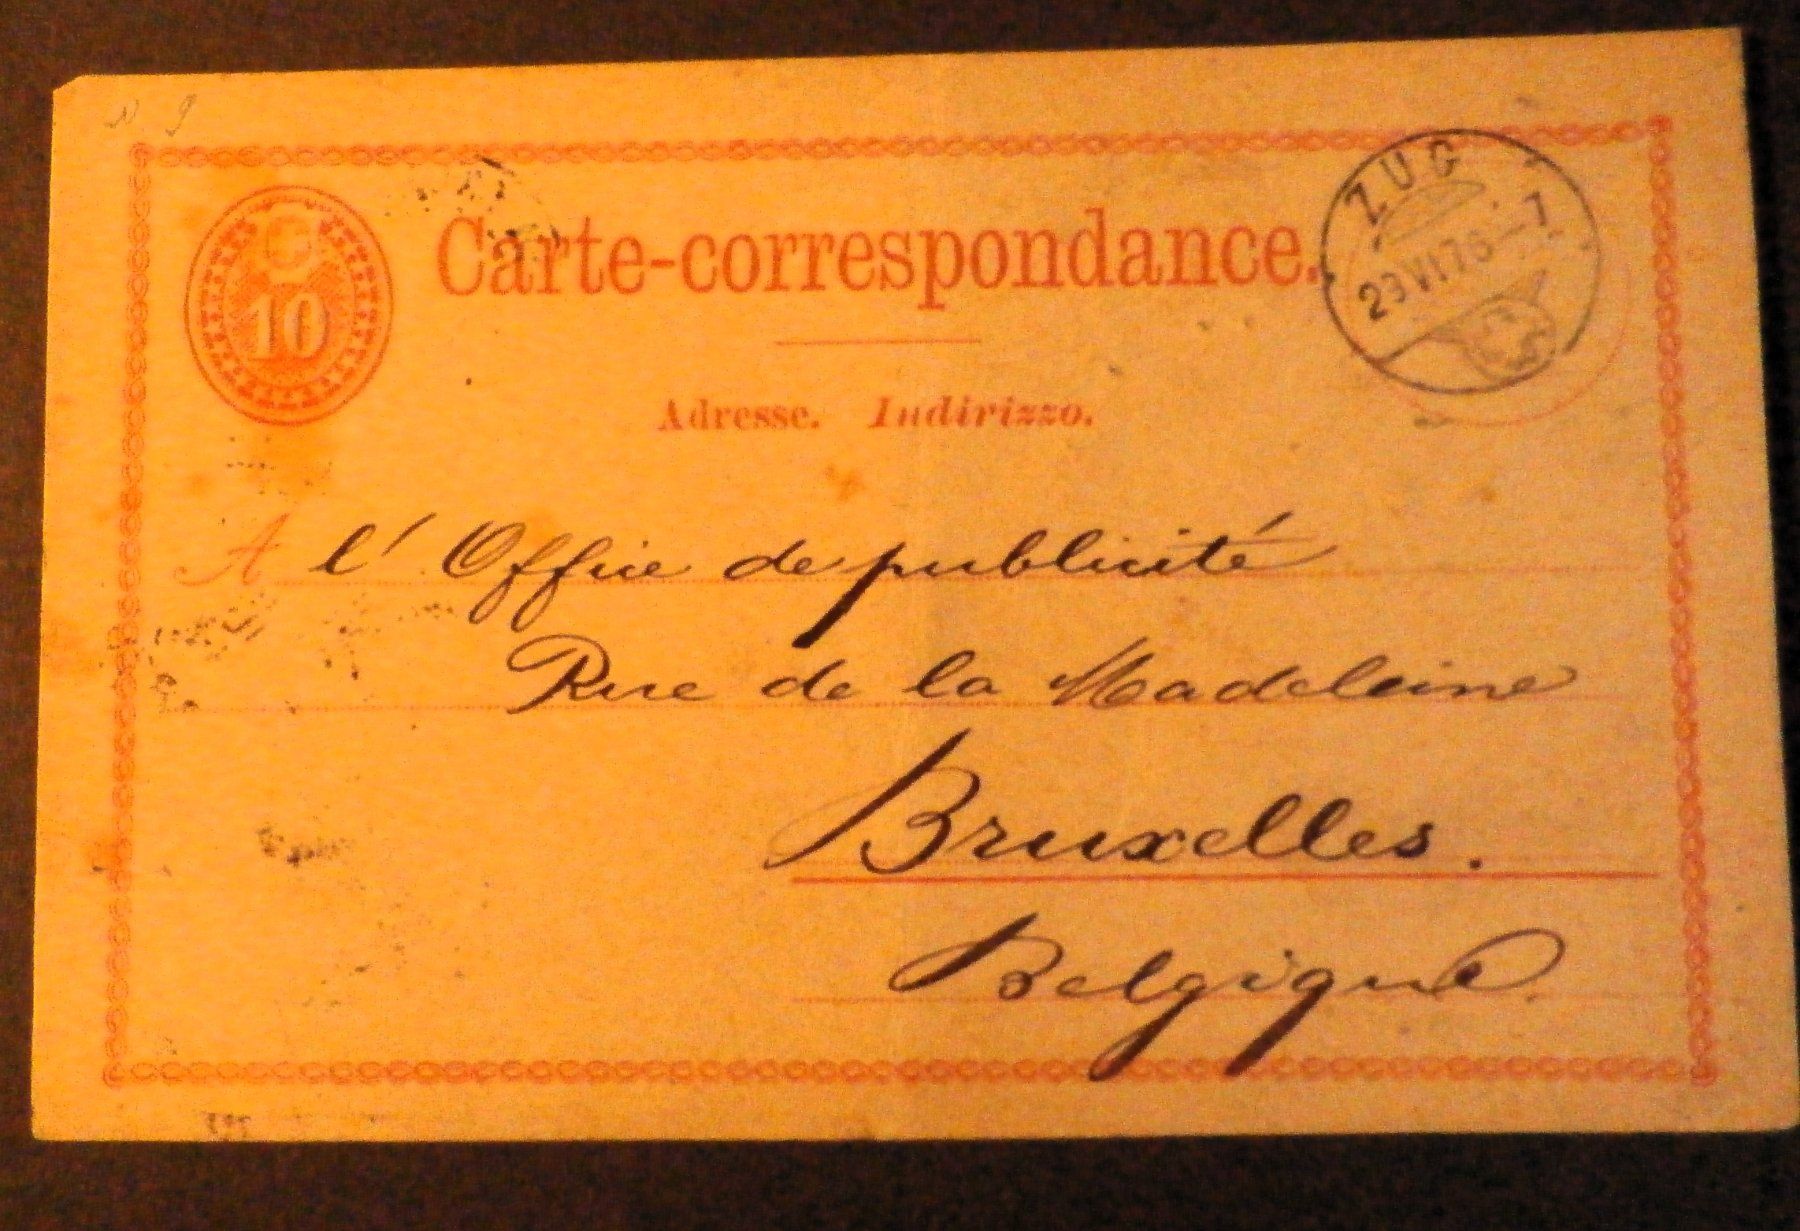 N 9
10
Carte-correspondance.
ZUG
29 VI 76 - 7
Adresse. Indirizzo.
A l'Office de publicité
Rue de la Madeleine
Bruxelles.
Belgique